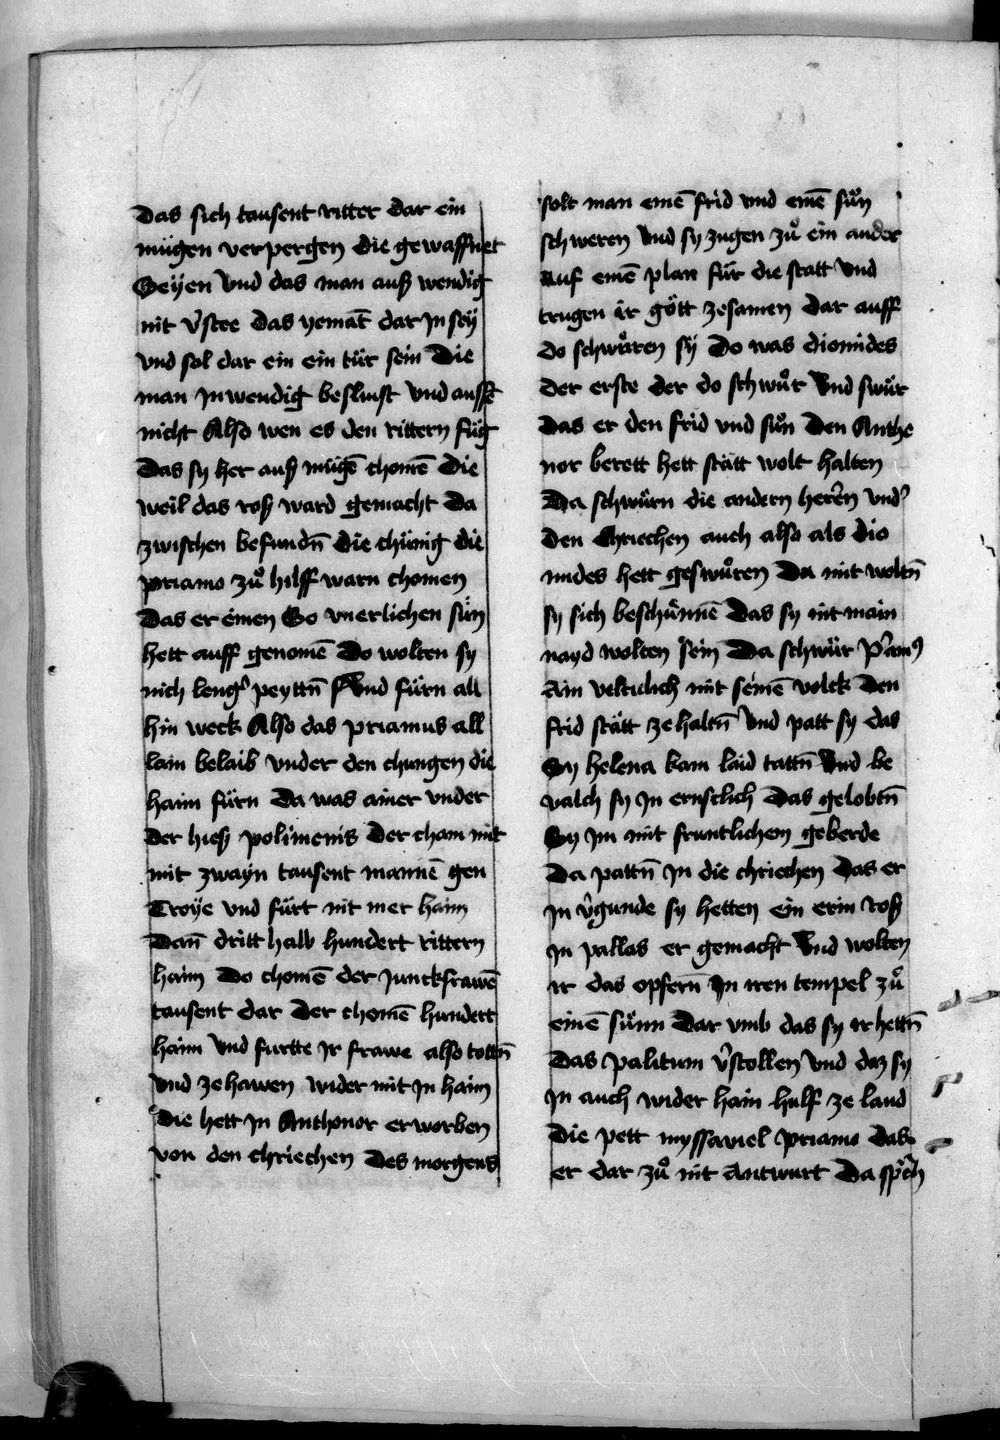 das sich tausent ritter dar ein
mügen verpergen die gewaffnet
Seÿen vnd das man auß wendig
nit v̉stee das yemāt dar Jn seÿ
vnd sol dar ein ein tür sein Die
man Jnwendig beslusst vnd ausse
nicht Also wen es den rittern füg
das sy her auß mügē chomē die
weil das roß ward gemacht Da
zwischen befundn̄ die chünig die
priamo zů hilff warn chomen
das er einen So vnerlichen sün
hett auff genomē Do wolten sy
nich leng̉ peyttn̄ vnd fürn all
hin weck Also das priamus all
lain belaib vnder den chungen die
haim fürn Da was ainer vnder
der hieß polimenis Der cham mit
mit zwayn tausent mannē gen
Troÿe vnd fürt nit mer haim
Dan̄ dritthalb hundert rittern
haim Do chomē der Junckfrawē
tausent dar Der chomē hundert
haim Vnd furtte Jr frawe also tottn̄
vnd zehawen wider mit Jn haim
Die hett Jn Anthonor erworben
von den chriechen Des morgens
solt man einē frid vnd einē sůn
schweren Vnd sy zugen zů ein ander
auf einē plan für die statt Vnd
trugen ir gött zesamen Dar auff
do schwůren sÿ Do was diomides
der erste der do schwůr Vnd swůr
das er den frid vnd sůn Den Anthe
nor berett hett stätt wolt halten
Da schwůrn die andern herrn vnd̉
den Chriechen auch also als dio
mides hett geswůren Da mit woltn̄
sy sich beschünnē Das sy nit main
nayd wolten sein Da schwůr Priam9
Ain velticlich mit seinē volck Den
frid stätt ze haltn̄ Vnd patt sy das
Sy helena kain laid tattn̄ Vnd be
valch sy Jn ernstlich Das gelobtn̄
Sy Jm mit fruntlichem geberde
Da pattn̄ Jn die chriechen Das er
Jn v̉gunde sy hetten ein erin roß
Jn pallas er gemacht Vnd wolten
ir das opfern̄ Jn iren tempel zů
einē sůnn Dar vmb das sy ir hettn̄
Das palitum v̉stollen Vnd daz sy
Jn auch wider haim hulf ze land
Die pett priamo Das
er dar zů nit Antwurt Da sp̉ch